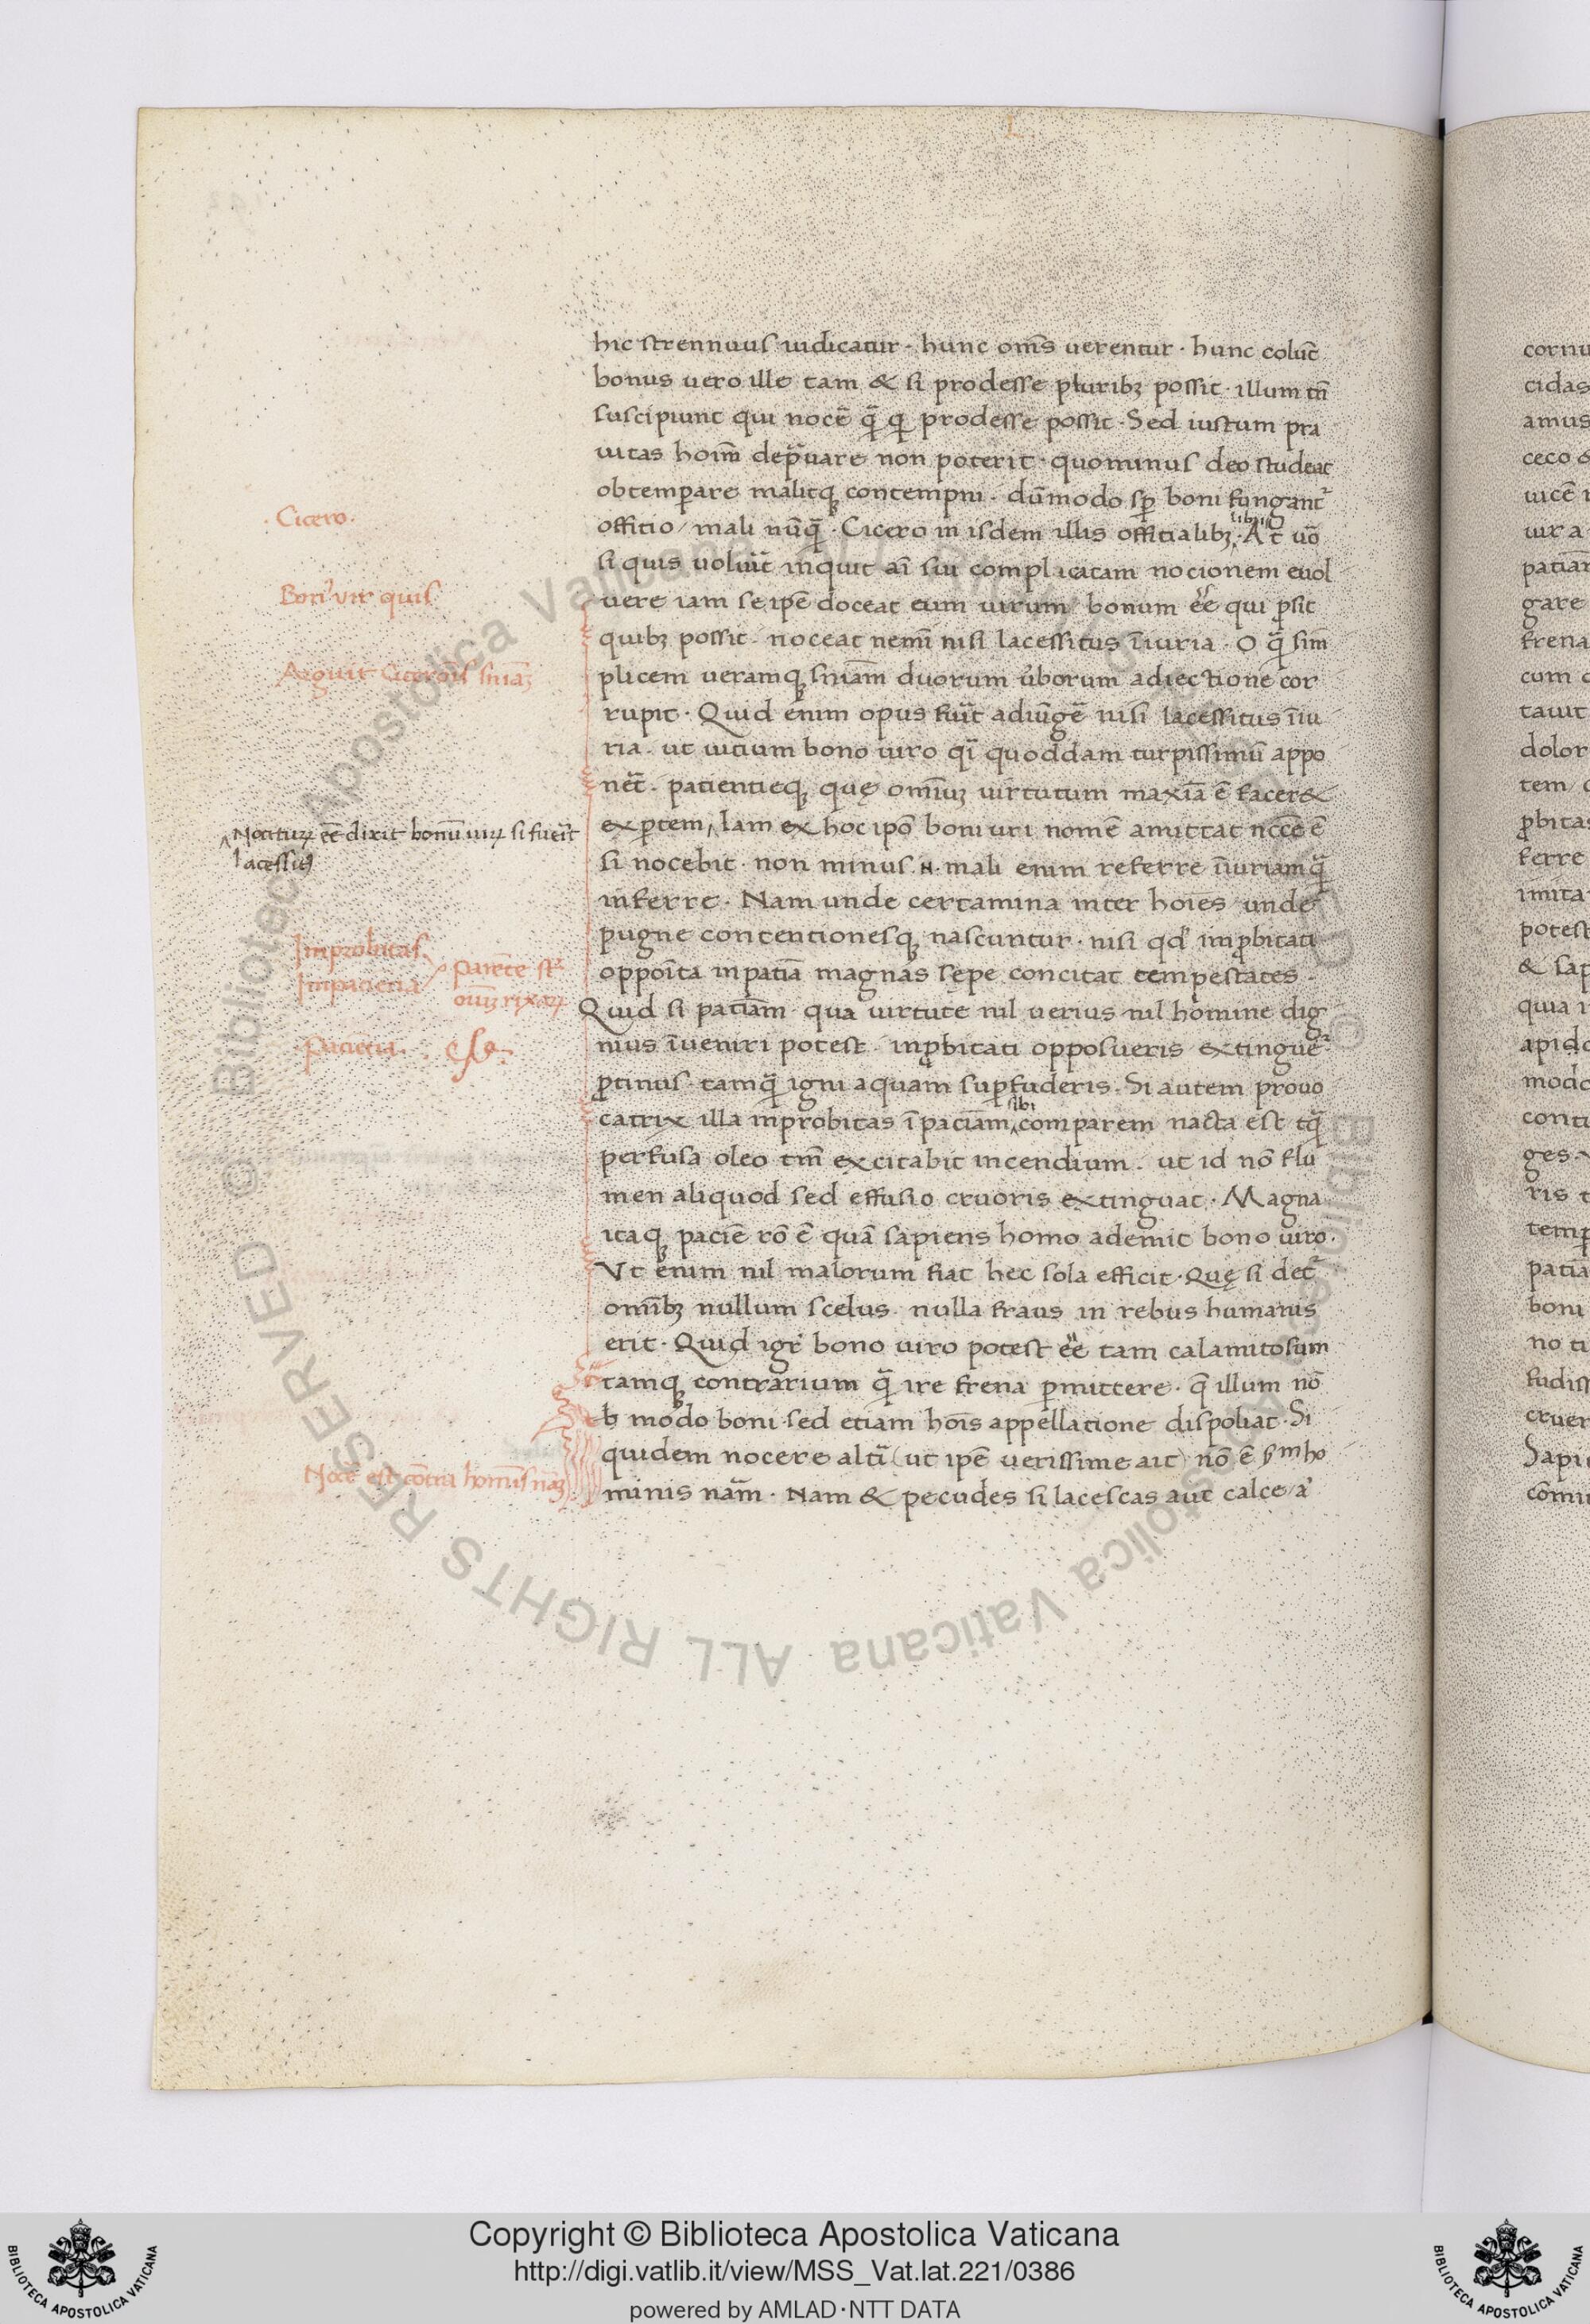 L
hic strennuus iudicatur · hunc om̄s uerentur · hunc colūt
bonus uero ille tam & si prodesse pluribꝫ possit · illum tn̄
suscipiunt qui nocē q̄ꝫ q prodesse possit · Sed iustum pra
uitas hoīm dep̱uare non poterit · quominus deo studeat
obtemꝑare malitqꝫ contempni · dūmodo sꝑ boni fungant᷑
offitio / mali nūq̄ꝫ · Cicero in isdem illis offitialibꝫ libris · At uō
si quis uoluīt inquit aī sui complicitam nocionem euol
uere iam se ipē doceat eum uirum bonum eē qui ꝓsit
quibꝫ possit · noceat nemī nisi lacessitus īiuria · O q̄ꝫ sim
plicem ueramqꝫ sniām duorum ūborum adiectione cor
rupit · Quid enim opus fuīt adiūgē nisi lacessitus īiu
ria · ut uitium bono uiro qī quoddam turpissimū appo
nēt · patientieqꝫ quę omīuꝫ uirtutum maxīa ē facer&
exꝑtem ‸ Iam ex hoc ipō boni uiri nomē amittat nccē ē
si nocebit · non minus .N. mali enim referre īiuriam q̄ꝫ
inferre · Nam unde certamina inter hoīes unde
pugne contentionesqꝫ nascuntur · nisi qd' imꝓbitati
oppoīta inpatīa magnas sępe concitat tempestates ·
Quid si patiām · qua uirtute nil uerius nil homine dig
nius īueniri potest · inꝓbitati opposueris extinguet᷑
ꝓtinus · tamq̄ꝫ igni aquam suꝑfuderis · Si autem prouo
catrix illa inprobitas īpaciām ‸sibi comparem nacta est tq̄ꝫ
perfusa oleo tm̄ excitabit incendium · ut id nō flu
men aliquod sed effusio cruoris extinguat · Magna
itaqꝫ paciē rō ē quā sapiens homo ademit bono uiro ·
Vt enim nil malorum fiat hec sola efficit · Quę si det᷑
omībꝫ nullum scelus · nulla fraus in rebus humanis
erit · Quid igr̄ bono uiro potest eē tam calamitosum
tamqꝫ contrarium q̄ꝫ ire frena ꝑmittere · q̄ illum nō
modo boni · sed etiam hoīs appellatione dispoliat · Si
quidem nocere altī (ut ipē uerissime ait) nō ē ẜm ho
minis nām · Nam & pecudes si lacescas aut calce / a'
· Cicero ·
Bon' vir quis
Arguit Ciceroīs sniāꝫ
‸ Nociturꝫ eē dixit bonū uirꝫ si fuēit
lacessit'
Improbitas
Impacieīa
parēte st̄
oīuꝫ rixarꝫ
Paciecia ·
Nocē est cōtra homīs nāꝫ
Copyright © Biblioteca Apostolica Vaticana
http://digi.vatlib.it/view/MSS_Vat.lat.221/0386
powered by AMLAD·NTT DATA